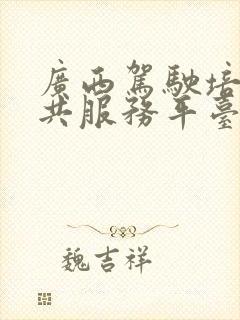 廣西駕駛培
共服務平臺
魏吉祥